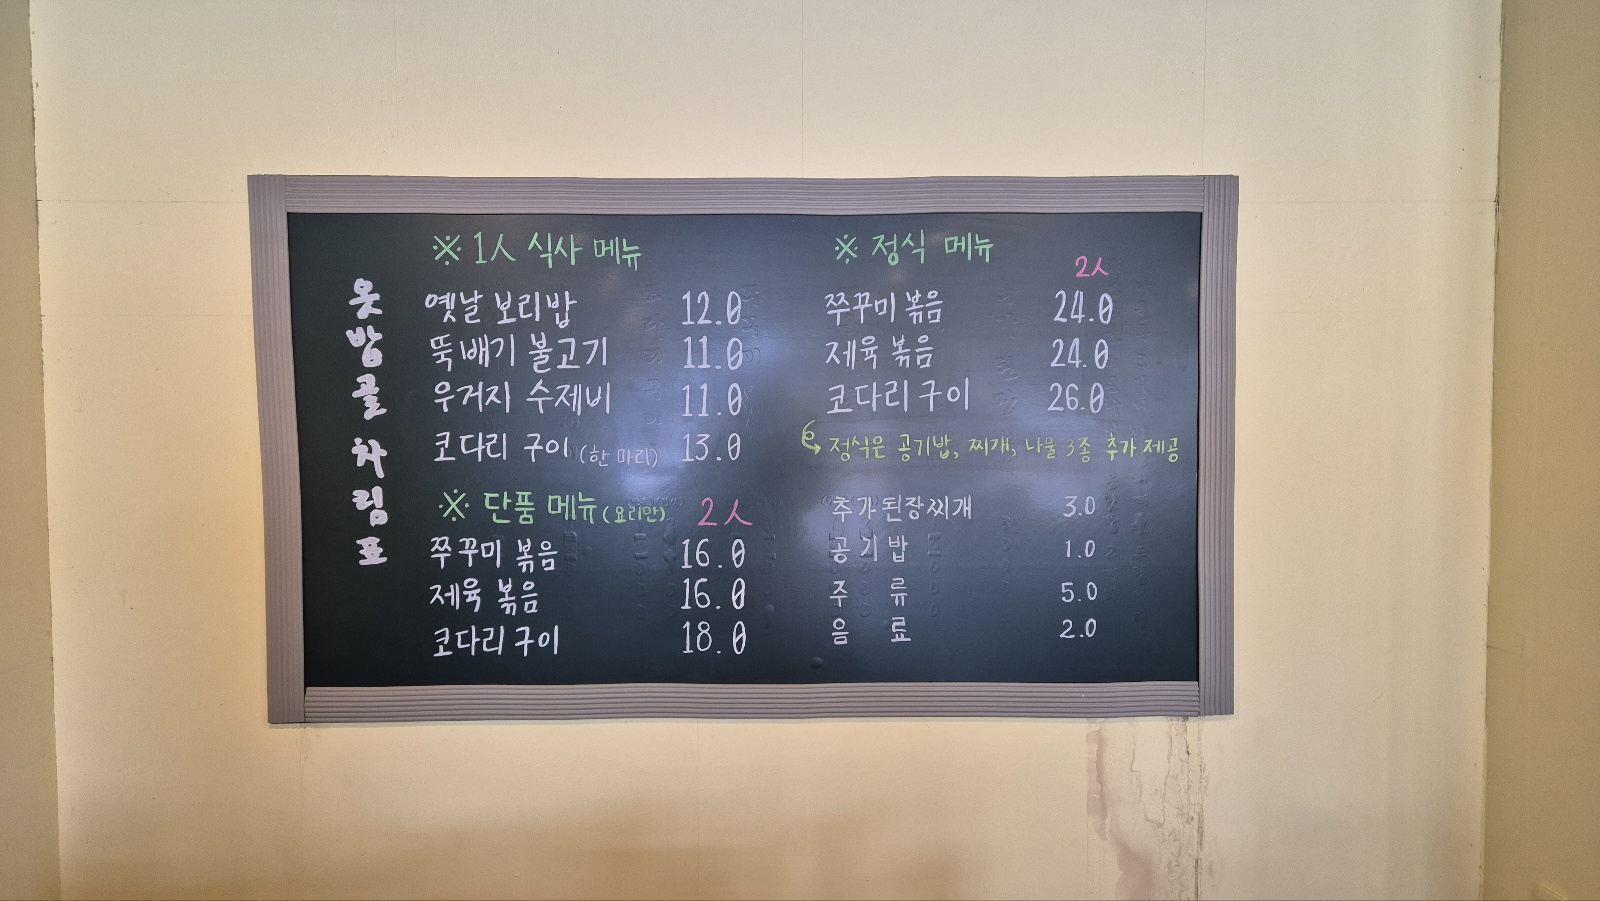 옷밥골 차림표
※ 1人 식사 메뉴
옛날 보리밥 12.0
뚝배기 불고기 11.0
우거지 수제비 11.0
코다리 구이 (한 마리) 13.0
※ 단품 메뉴 (요리만) 2人
쭈꾸미 볶음 16.0
제육 볶음 16.0
코다리 구이 18.0
※ 정식 메뉴
2人
쭈꾸미 볶음 24.0
제육 볶음 24.0
코다리 구이 26.0
정식은 공기밥, 찌개, 나물 3종 추가 제공
추가 된장찌개 3.0
공기밥 1.0
주 류 5.0
음 료 2.0